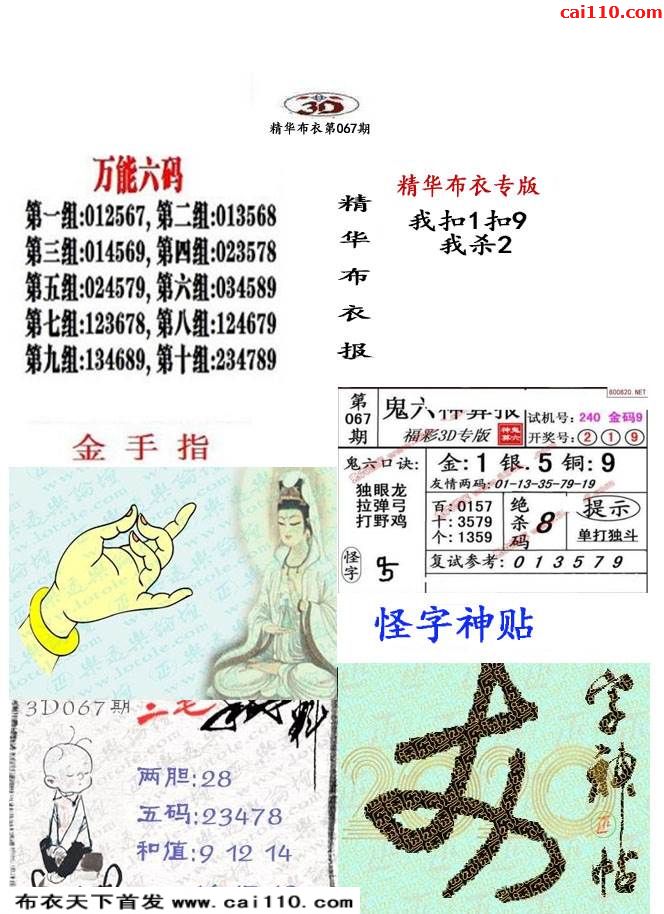 cai110.com
3D
精华布衣第067期
万能六码
第一组:012567, 第二组:013568
第三组:014569, 第四组:023578
第五组:024579, 第六组:034589
第七组:123678, 第八组:124679
第九组:134689, 第十组:234789
精华布衣报
精华布衣专版
我扣1扣9
我杀2
金手指
600620.NET
第067期
鬼六神算报
福彩3D专版
试机号: 240 金码9
开奖号: 2 1 9
鬼六口诀:
独眼龙
拉弹弓
打野鸡
金:1 银:5 铜:9
友情两码:01-13-35-79-19
百:0157
十:3579
个:1359
绝杀码
8
提示
单打独斗
怪字
复试参考: 0 1 3 5 7 9
怪字神贴
3D067期
两胆:28
五码:23478
和值:9 12 14
2020
字神帖
布衣天下首发 www.cai110.com